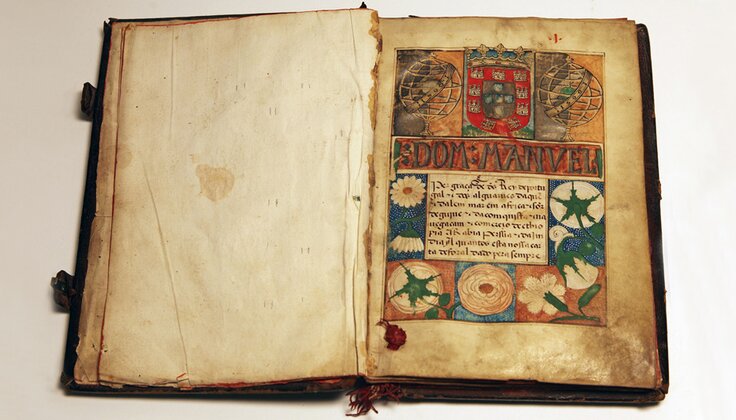 DOM: MANVEL
Per graça de ds Rey deportu
gal & dos alguarves daquẽ
& dalem mar em africa & sõr
de guine & da conquista & na
vegacam & comercio de ethio
pia Arabia Persia & da in
dia A quantos esta nossa car
ta de foral dado pera sempre